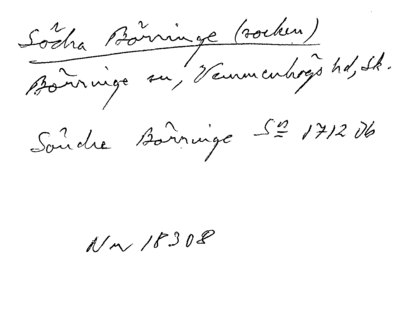 Södra Börringe (socken)
Börringe sn, Vemmenhögs hd, Sk.
Söndre Börringe Sn 1712 Jb
Nr 18308